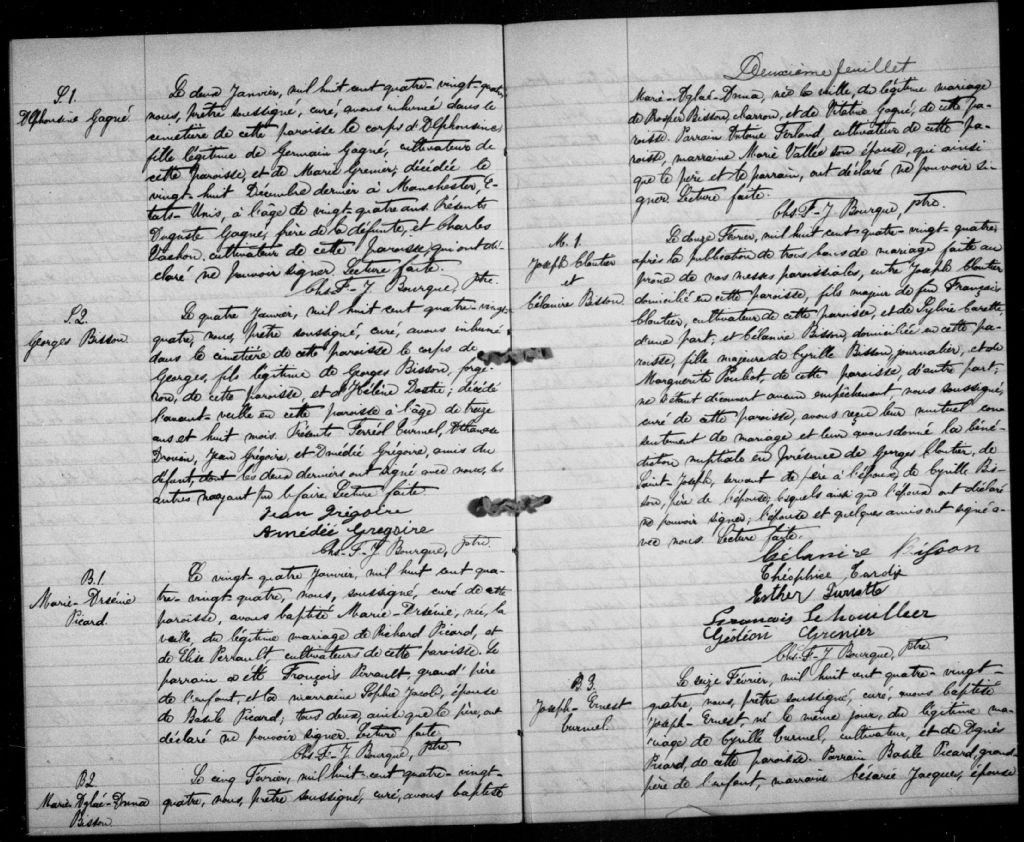 S.1.
Alphonsine Gagné
Le deux Janvier, mil huit cent quatre-vingt-quatre,
nous, Prêtre soussigné, curé, avons inhumé dans le
cimetière de cette paroisse le corps d'Alphonsine,
fille légitime de Germain Gagné, cultivateur de
cette Paroisse, et de Marie Grenier, décédée le
vingt-huit Décembre dernier à Manchester, E-
tats-Unis, à l'âge de vingt-quatre ans. Présents
Auguste Gagné, frère de la défunte, et Charles
Vachon, cultivateur de cette Paroisse, qui ont dé-
claré ne pouvoir signer. Lecture faite.
Chs. F-J Bourque, ptre.
S.2
Georges Bisson
Le quatre Janvier, mil huit cent quatre-vingt-
quatre, nous, prêtre soussigné, curé, avons inhumé
dans le cimetière de cette paroisse le corps de
Georges, fils légitime de Georges Bisson, forge-
ron, de cette paroisse, et d'Hélène Dostie; décédé
l'avant-veille en cette paroisse à l'âge de treize
ans et huit mois. Présents Ferréol Turmel, Athanase
Drouin, Jean Grégoire, et Amédée Grégoire, amis du
défunt, dont les deux derniers ont signé avec nous, les
autres n'ayant pu le faire. Lecture faite.
Jean Grégoire
Amédée Gregoire
Chs. F-J Bourque, ptre.
B.1.
Marie-Arsénie
Picard.
Le vingt-quatre Janvier, mil huit cent qua-
tre-vingt-quatre, nous, soussigné, curé de cette
paroisse, avons baptisé Marie-Arsénie, née, la
veille, du légitime mariage de Richard Picard, et
de Elise Perrault cultivateurs de cette paroisse. Le
parrain a été François Perrault, grand'père
de l'enfant, et la marraine Sophie Jacob, épouse
de Basile Picard; tous deux, ainsi que le père, ont
déclaré ne pouvoir signer. Lecture faite.
Chs. F-J Bourque, ptre
B2
Marie-Aglaé-Anna
Bisson
Le cinq Février, mil huit cent quatre-vingt-
quatre, nous, prêtre soussigné, curé, avons baptisé
Deuxième feuillet
Marie-Aglaé-Anna, née la veille, du légitime mariage
de Prosper Bisson, charron, et de Vitaline Gagné, de cette pa-
roisse. Parrain Antoine Ferland, cultivateur de cette pa-
roisse, marraine Marie Vallée son épouse, qui ainsi
que le père et le parrain, ont déclaré ne pouvoir si-
gner. Lecture faite.
Chs. F-J Bourque, ptre.
M. 1.
Joseph Cloutier
et
Célanire Bisson
Le douze Février, mil huit cent-quatre-vingt-quatre,
après la publication de trois bans de mariage faite au
prône de nos messes paroissiales, entre Joseph Cloutier,
domicilié en cette paroisse, fils majeur de feu François
Cloutier, cultivateur de cette paroisse, et de Sylvie Carette,
d'une part; et Célanire Bisson, domiciliée en cette pa-
roisse, fille majeure de Cyrille Bisson, journalier, et de
Marguerite Pouliot, de cette paroisse, d'autre part;
ne s'étant découvert aucun empêchement, nous soussigné,
curé de cette paroisse, avons reçu leur mutuel con-
sentement de mariage et leur avons donné la béné-
diction nuptiale en présence de Georges Cloutier, de
Saint-Joseph, servant de père à l'époux, de Cyrille Bis-
son, père de l'épouse, lesquels ainsi que l'époux ont déclaré
ne pouvoir signer; l'épouse et quelques amis ont signé a-
vec nous. Lecture faite.
Célanire Bisson
Théophise Tardif
Esther Turcotte
Francois Lehoullier
Gédéon Grenier
Chs. F-J Bourque, ptre
B.3.
Joseph-Ernest
Turmel.
Le seize Février, mil huit cent quatre-vingt-
quatre, nous, prêtre soussigné, curé, avons baptisé
Joseph-Ernest né le même jour, du légitime ma-
riage de Cyrille Turmel, cultivateur, et de Agnès
Picard, de cette paroisse. Parrain Basile Picard, grand-
père de l'enfant, marraine Césarie Jacques, épouse